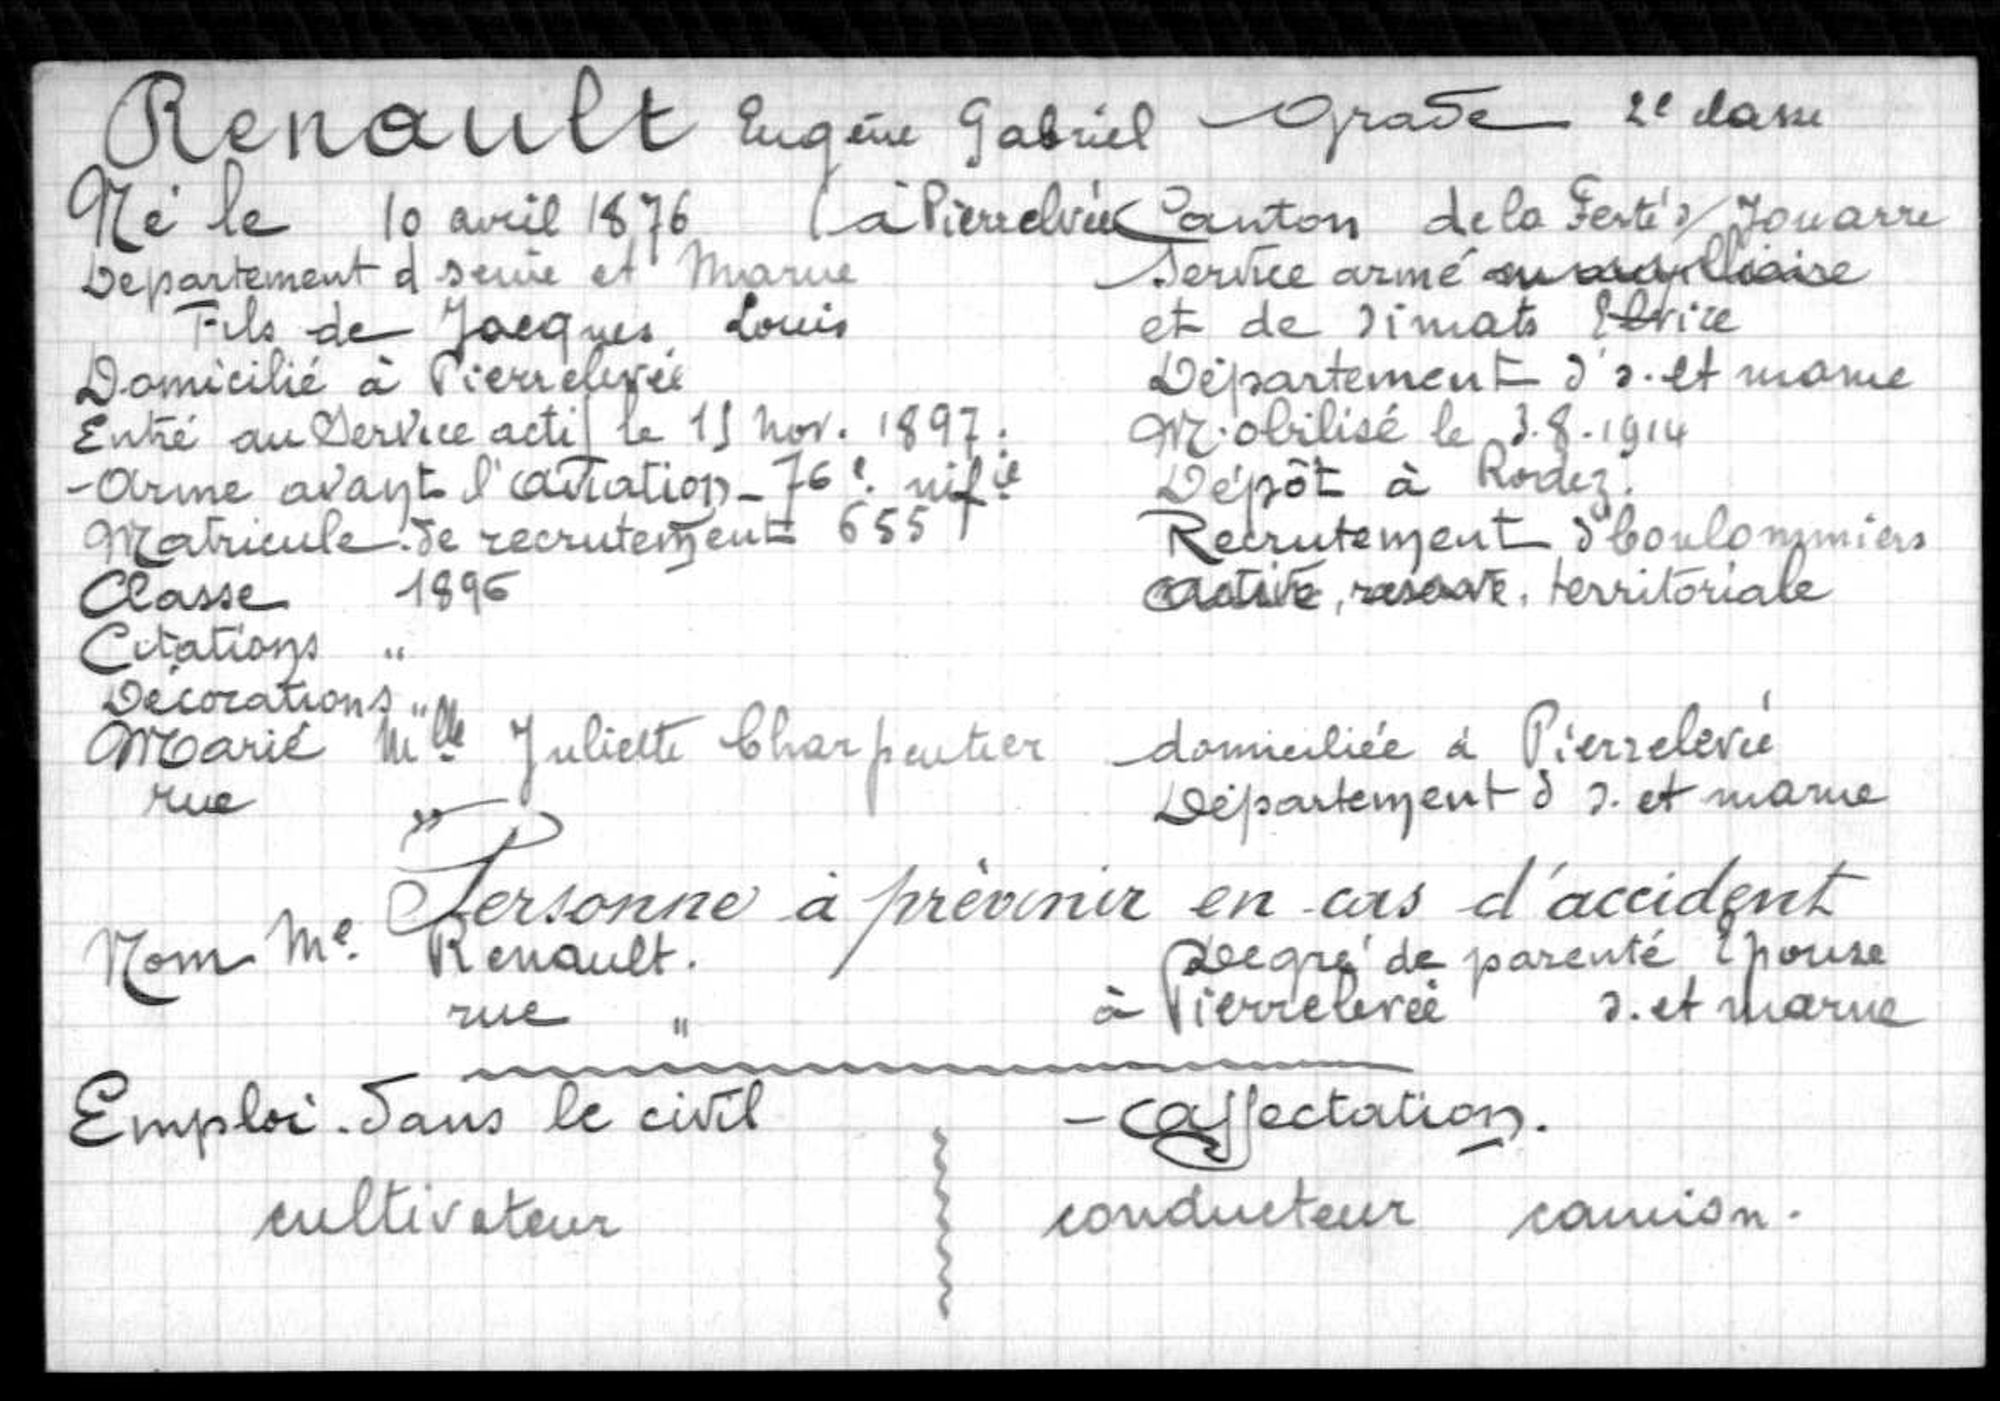 Renault Eugène Gabriel Grade 2e classe
Né le 10 avril 1876 à Pierrelevée Canton de la Ferté s/ Jouarre
Département d Seine et Marne Service armé ou auxilliaire
Fils de Jacques Louis et de Simats Elvire
Domicilié à Pierrelevée Département d s. et marne
Entré au Service actif le 15 nov. 1897. Mobilisé le 3.8.1914
- Arme avant l'aviation - 76e. inf ie Dépôt à Rodez.
Matricule de recrutement 655 Recrutement d Coulommiers
Classe 1896 active, réserve, territoriale
Citations "
Décorations "
Marié Mlle Juliette Charpentier domiciliée à Pierrelevée
rue " Département d s. et marne
Personne à prévenir en cas d'accident
Nom Me. Renault. Degré de parenté Épouse
rue " à Pierrelevée s. et marne
Emploi dans le civil - Affectation.
cultivateur conducteur camion.